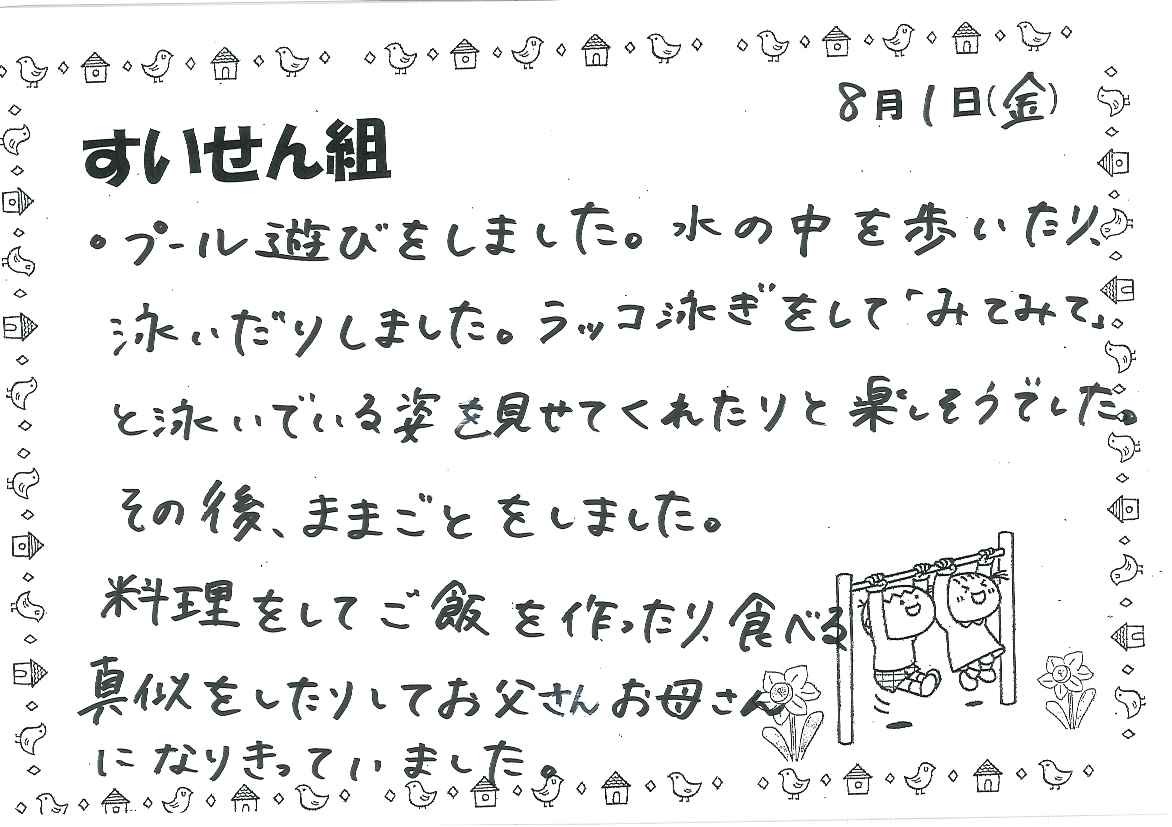 8月1日(金)
すいせん組
・プール遊びをしました。水の中を歩いたり、
泳いだりしました。ラッコ泳ぎをして「みてみて」
と泳いでいる姿を見せてくれたりと楽しそうでした。
その後、ままごとをしました。
料理をしてご飯を作ったり、食べる
真似をしたりしてお父さんお母さん
になりきっていました。